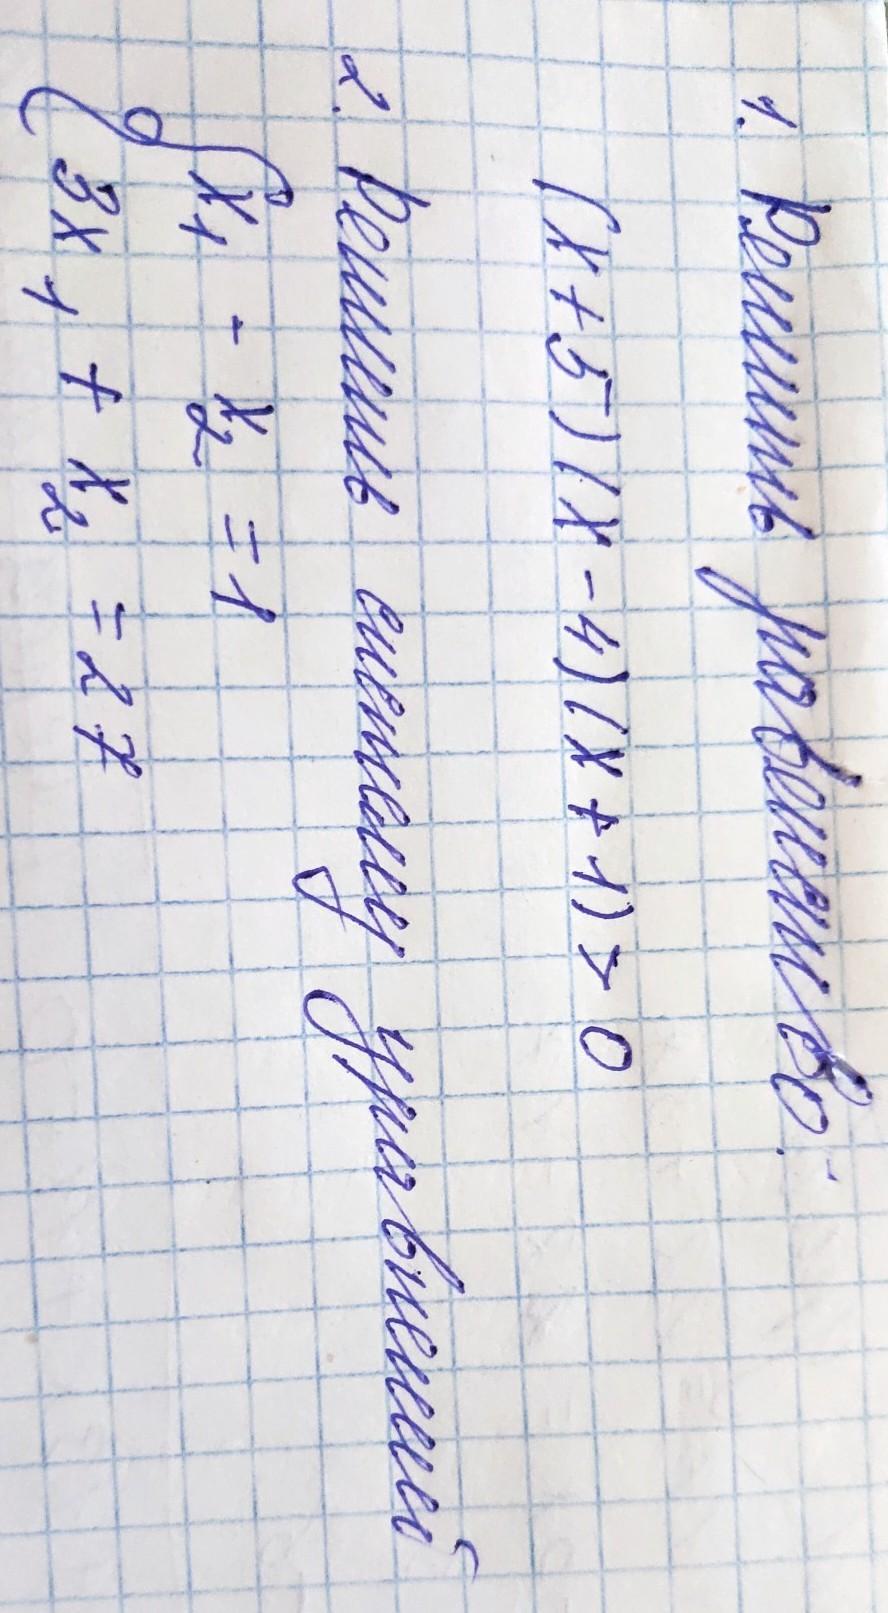 1. Решить равенство:
(x+5)(x-4)(x+1)>0
2. Решить систему уравнений
{x₁ - x₂ = 1
3x₁ + x₂ = 27